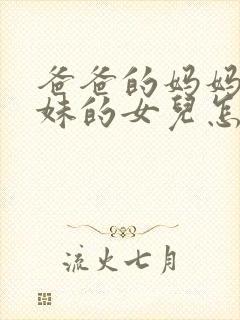 爸爸的妈妈
妹的女兒怎
流火七月